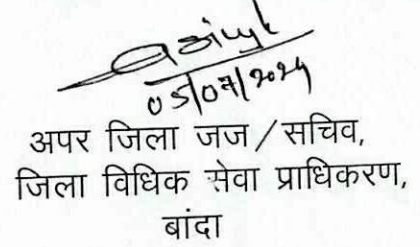 05/07/2024
अपर जिला जज/सचिव,
जिला विधिक सेवा प्राधिकरण,
बांदा